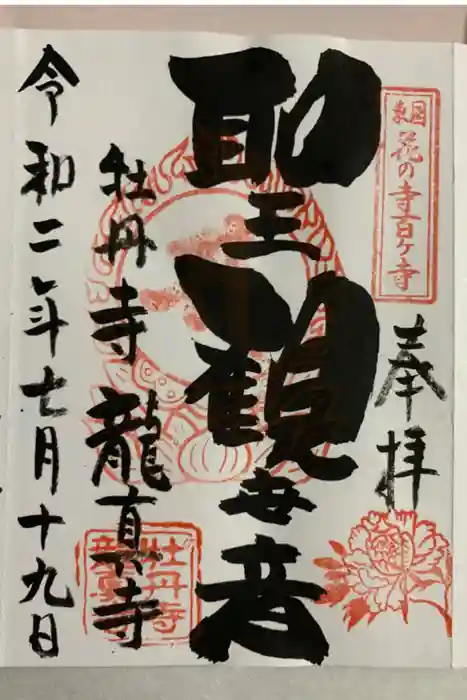 東国花の寺百ヶ寺
奉拝
聖観世音
牡丹寺 龍真寺
牡丹寺
龍真寺
令和二年七月十九日